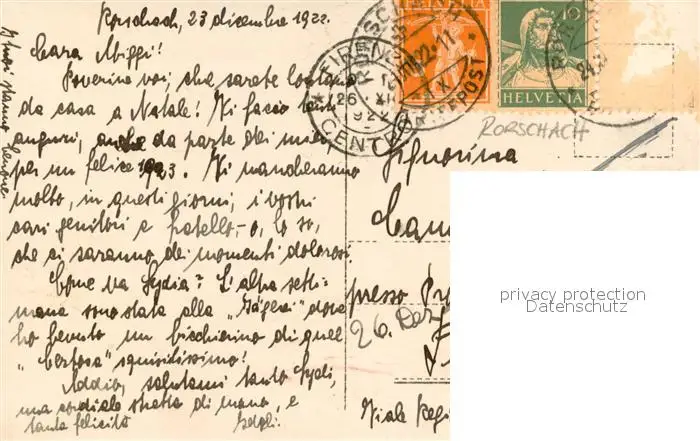 Rorschach, 23 dicembre 1922.
Cara Mippi!
Poverine voi, che sarete lontane
da casa a Natale! Vi faccio tanti
auguri, anche da parte dei miei
per un felice 1923. Vi mancheranno
molto, in questi giorni, i vostri
cari genitori e fratello, – o, lo so,
che ci saranno dei momenti dolorosi.
Come va Lydia? L'altra setti-
mana sono stata alla „Jägerei" dove
ho bevuto un bicchierino di quel
„Certosa" squisitissimo!
Addio, salutami tanto Lydi,
una cordiale stretta di mano, e
tanta felicità
I tuoi stanno benone
FIRENZE
CENTRO
26 XII
922
HELVETIA
RORSCHACH
Signorina
presso
26. Dez
Viale Regi
privacy protection
Datenschutz